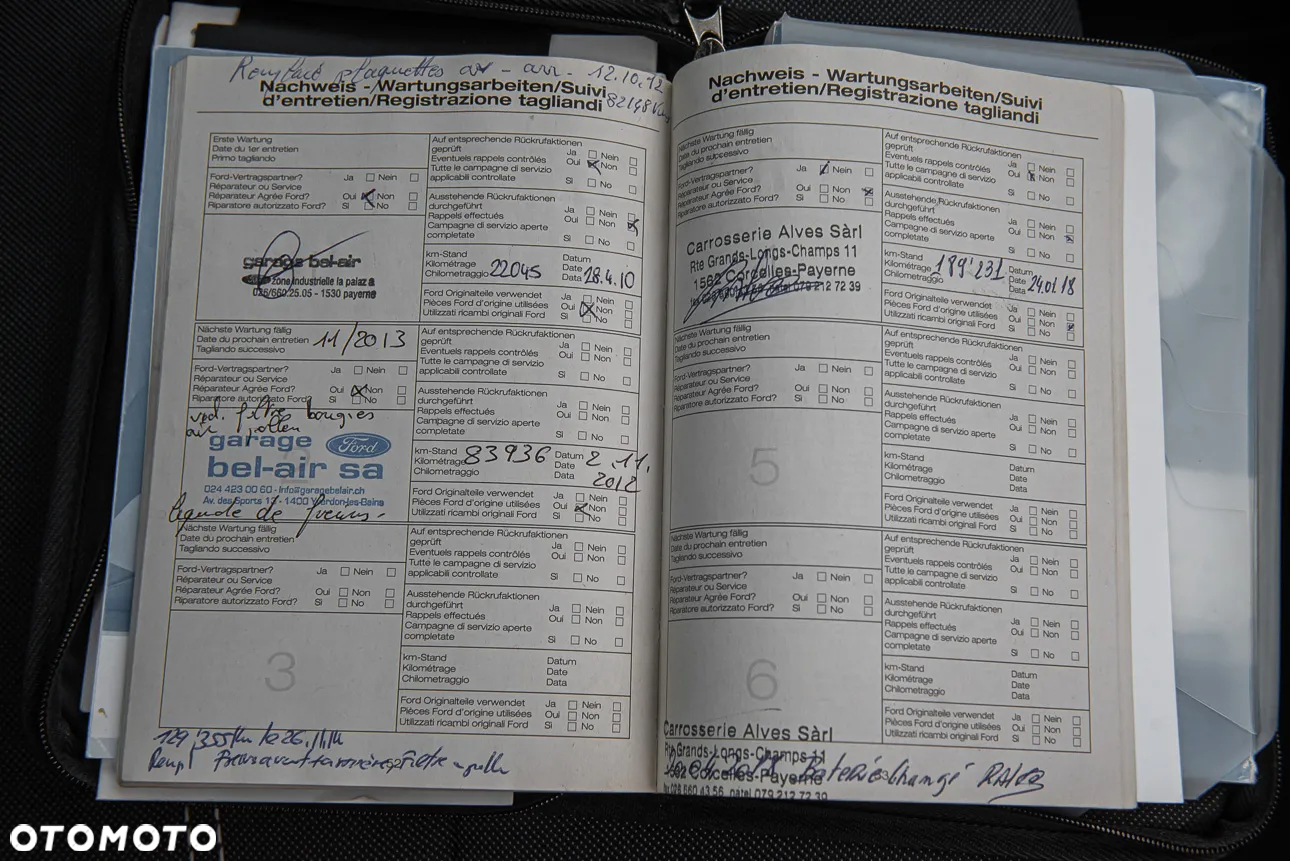 Remplacé plaquettes av - arr - 12.10.12
82148 km
Nachweis - Wartungsarbeiten/Suivi
d'entretien/Registrazione tagliandi
Erste Wartung
Date du 1er entretien
Primo tagliando
Ford-Vertragspartner? Ja Nein
Réparateur ou Service
Réparateur Agrée Ford? Oui Non
Riparatore autorizzato Ford? Si No
garage bel-air
zone industrielle la palaz a
026/660.25.05 - 1530 payerne
Auf entsprechende Rückrufaktionen
geprüft Ja Nein
Eventuels rappels contrôlés Oui Non
Tutte le campagne di servizio
applicabili controllate Si No
Ausstehende Rückrufaktionen
durchgeführt Ja Nein
Rappels effectués Oui Non
Campagne di servizio aperte
completate Si No
km-Stand Datum
Kilométrage 22045 Date 28.4.10
Chilometraggio Data
Ford Originalteile verwendet Ja Nein
Pièces Ford d'origine utilisées Oui Non
Utilizzati ricambi originali Ford Si No
Nächste Wartung fällig
Date du prochain entretien 11/2013
Tagliando successivo
Ford-Vertragspartner? Ja Nein
Réparateur ou Service
Réparateur Agrée Ford? Oui Non
Riparatore autorizzato Ford? Si No
filtre bougies
air pollen
garage Ford
bel-air sa
024 423 00 60 - info@garagebelair.ch
Av. des Sports 13 - 1400 Yverdon-les-Bains
liquide de freins -
Auf entsprechende Rückrufaktionen
geprüft Ja Nein
Eventuels rappels contrôlés Oui Non
Tutte le campagne di servizio
applicabili controllate Si No
Ausstehende Rückrufaktionen
durchgeführt Ja Nein
Rappels effectués Oui Non
Campagne di servizio aperte
completate Si No
km-Stand Datum
Kilométrage 83936 Date 2.11.
Chilometraggio Data 2012
Ford Originalteile verwendet Ja Nein
Pièces Ford d'origine utilisées Oui Non
Utilizzati ricambi originali Ford Si No
Nächste Wartung fällig
Date du prochain entretien
Tagliando successivo
Ford-Vertragspartner? Ja Nein
Réparateur ou Service
Réparateur Agrée Ford? Oui Non
Riparatore autorizzato Ford? Si No
3
Auf entsprechende Rückrufaktionen
geprüft Ja Nein
Eventuels rappels contrôlés Oui Non
Tutte le campagne di servizio
applicabili controllate Si No
Ausstehende Rückrufaktionen
durchgeführt Ja Nein
Rappels effectués Oui Non
Campagne di servizio aperte
completate Si No
km-Stand Datum
Kilométrage Date
Chilometraggio Data
Ford Originalteile verwendet Ja Nein
Pièces Ford d'origine utilisées Oui Non
Utilizzati ricambi originali Ford Si No
129'355 km le 26.
Rempl Freins avant
Nachweis - Wartungsarbeiten/Suivi
d'entretien/Registrazione tagliandi
Nächste Wartung fällig
Date du prochain entretien
Tagliando successivo
Ford-Vertragspartner? Ja Nein
Réparateur ou Service
Réparateur Agrée Ford? Oui Non
Riparatore autorizzato Ford? Si No
Carrosserie Alves Sàrl
Rte Grands-Longs-Champs 11
1562 Corcelles-Payerne
079 212 72 39
Auf entsprechende Rückrufaktionen
geprüft Ja Nein
Eventuels rappels contrôlés Oui Non
Tutte le campagne di servizio
applicabili controllate Si No
Ausstehende Rückrufaktionen
durchgeführt Ja Nein
Rappels effectués Oui Non
Campagne di servizio aperte
completate Si No
km-Stand Datum
Kilométrage 189'231 Date 24.01.18
Chilometraggio Data
Ford Originalteile verwendet Ja Nein
Pièces Ford d'origine utilisées Oui Non
Utilizzati ricambi originali Ford Si No
Nächste Wartung fällig
Date du prochain entretien
Tagliando successivo
Ford-Vertragspartner? Ja Nein
Réparateur ou Service
Réparateur Agrée Ford? Oui Non
Riparatore autorizzato Ford? Si No
5
Auf entsprechende Rückrufaktionen
geprüft Ja Nein
Eventuels rappels contrôlés Oui Non
Tutte le campagne di servizio
applicabili controllate Si No
Ausstehende Rückrufaktionen
durchgeführt Ja Nein
Rappels effectués Oui Non
Campagne di servizio aperte
completate Si No
km-Stand Datum
Kilométrage Date
Chilometraggio Data
Ford Originalteile verwendet Ja Nein
Pièces Ford d'origine utilisées Oui Non
Utilizzati ricambi originali Ford Si No
Nächste Wartung fällig
Date du prochain entretien
Tagliando successivo
Ford-Vertragspartner? Ja Nein
Réparateur ou Service
Réparateur Agrée Ford? Oui Non
Riparatore autorizzato Ford? Si No
6
Auf entsprechende Rückrufaktionen
geprüft Ja Nein
Eventuels rappels contrôlés Oui Non
Tutte le campagne di servizio
applicabili controllate Si No
Ausstehende Rückrufaktionen
durchgeführt Ja Nein
Rappels effectués Oui Non
Campagne di servizio aperte
completate Si No
km-Stand Datum
Kilométrage Date
Chilometraggio Data
Ford Originalteile verwendet Ja Nein
Pièces Ford d'origine utilisées Oui Non
Utilizzati ricambi originali Ford Si No
Carrosserie Alves Sàrl
Rte Grands-Longs-Champs 11
1562 Corcelles-Payerne
026 660 43 56 natel 079 212 72 39
Baterie Changé
OTOMOTO